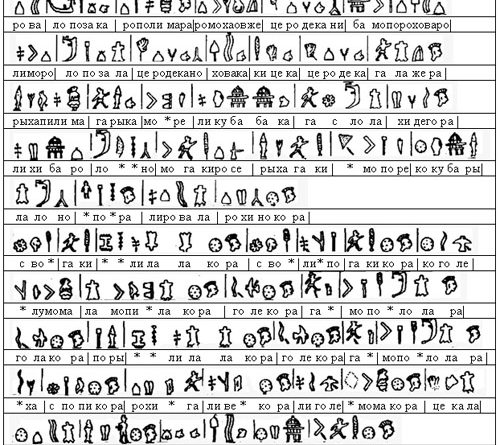 рова | лопозака | рополи мара|ромохаовже | церодекани| ба мопороховаро|
лиморо| лопозала |церодекано |ховака|кицека| церодека| галажера|
рыхапилима |гарыка|мо *ре |ликуба бака| га слола| хидегора|
лихибаро |ло * * но|мо гакиросе |рыхагаки | * мопоре|кокубары|
лало но| *по*ра | лировала | рохинокора|
сво*|гаки| * * лила лакора | сво*|ли*по|гакикора|коголе|
*лумома|ла мопи*лакора |голекора| га*| мопо*лола ра|
голакора|поры| * * лила лакора|голекора|га*| мопо*лолара|
*ха |спопикора|рохи * га|ливе* кора |лиголе|*момакора |цекала|